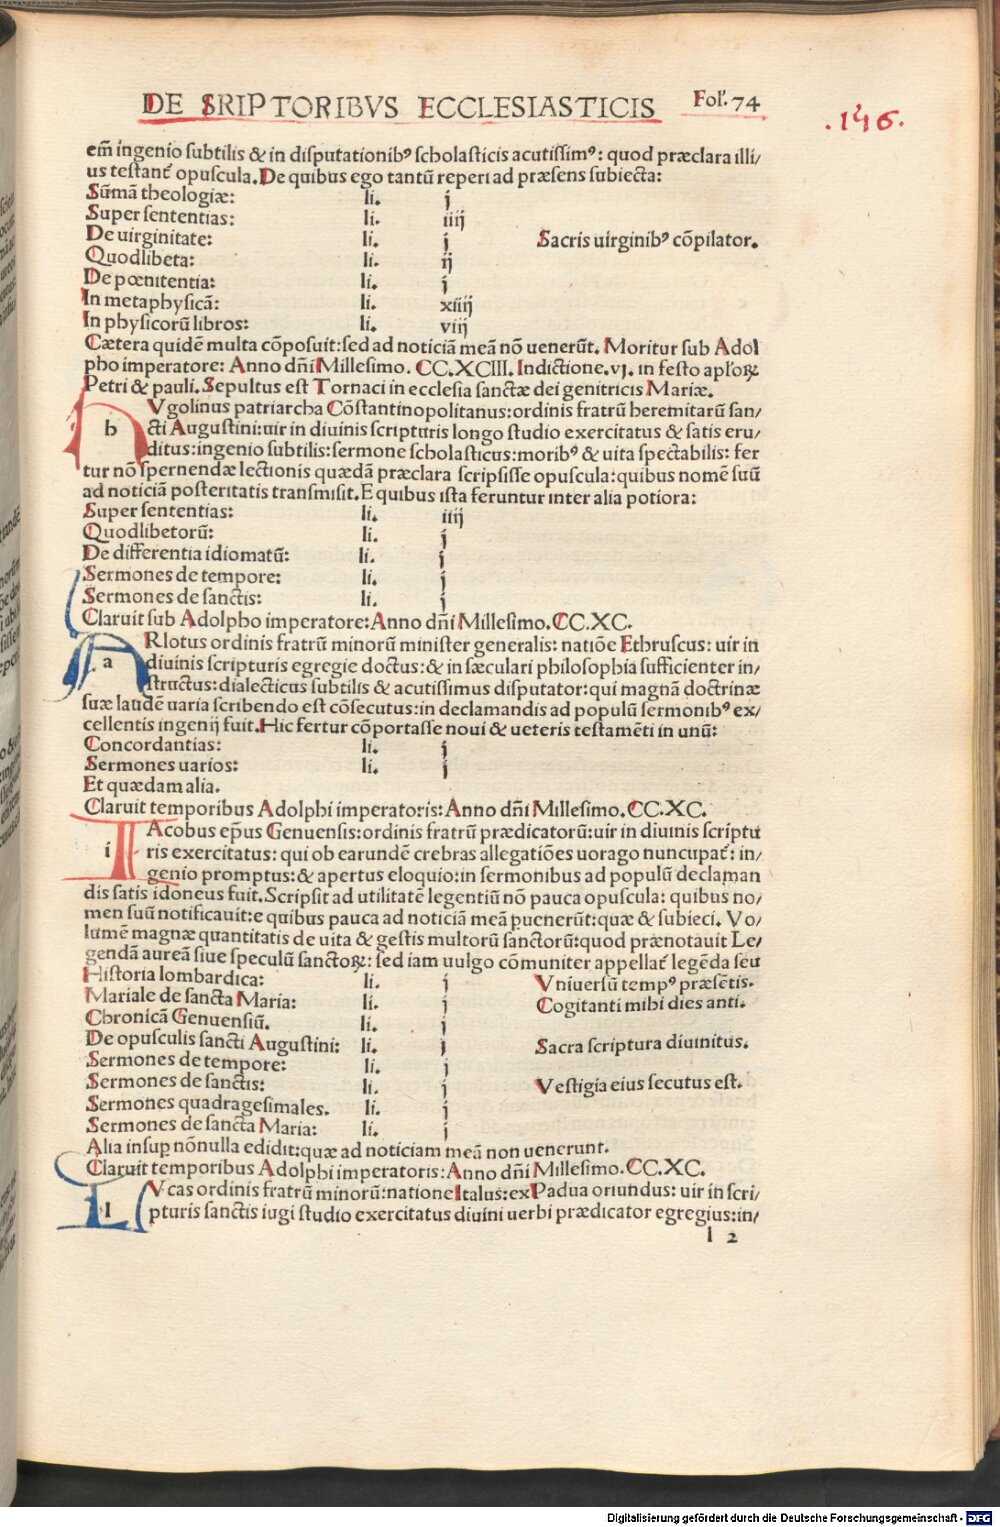 DE SRIPTORIBVS ECCLESIASTICIS Folꝰ. 74
.146.
em̄ ingenio subtilis & in disputationibꝰ scholasticis acutissimꝰ: quod præclara illi/
us testant᷑ opuscula. De quibus ego tantū reperi ad præsens subiecta:
Sūmā theologiæ: li. j
Super sententias: li. iiij
De uirginitate: li. j Sacris uirginibꝰ cōpilator.
Quodlibeta: li. ij
De pœnitentia: li. j
In metaphysicā: li. xiiij
In physicorū libros: li. viij
Cætera quidē multa cōposuit: sed ad noticiā meā nō uenerūt. Moritur sub Adol
pho imperatore: Anno dn̄i Millesimo. CC.XCIII. Indictione.vj. in festo apl'oꝝ
Petri & pauli. Sepultus est Tornaci in ecclesia sanctæ dei genitricis Mariæ.
h Vgolinus patriarcha Cōstantinopolitanus: ordinis fratrū heremitarū san/
cti Augustini: uir in diuinis scripturis longo studio exercitatus & satis eru/
ditus: ingenio subtilis: sermone scholasticus: moribꝰ & uita spectabilis: fer
tur nō spernendæ lectionis quædā præclara scripsisse opuscula: quibus nomē suū
ad noticiā posteritatis transmisit. E quibus ista feruntur inter alia potiora:
Super sententias: li. iiij
Quodlibetorū: li. j
De differentia idiomatū: li. j
Sermones de tempore: li. j
Sermones de sanctis: li. j
Claruit sub Adolpho imperatore: Anno dn̄i Millesimo. CC.XC.
a ARlotus ordinis fratrū minorū minister generalis: natiōe Ethruscus: uir in
diuinis scripturis egregie doctus: & in sæculari philosophia sufficienter in/
structus: dialecticus subtilis & acutissimus disputator: qui magnā doctrinæ
suæ laudē uaria scribendo est cōsecutus: in declamandis ad populū sermonibꝰ ex/
cellentis ingenij fuit. Hic fertur cōportasse noui & ueteris testamēti in unū:
Concordantias: li. j
Sermones uarios: li. j
Et quædam alia.
Claruit temporibus Adolphi imperatoris: Anno dn̄i Millesimo. CC.XC.
i IAcobus ep̄us Genuensis: ordinis fratrū prædicatorū: uir in diuinis scriptu
ris exercitatus: qui ob earundē crebras allegatiōes uorago nuncupat᷑: in/
genio promptus: & apertus eloquio: in sermonibus ad populū declaman
dis satis idoneus fuit. Scripsit ad utilitatē legentiū nō pauca opuscula: quibus no/
men suū notificauit: e quibus pauca ad noticiā meā ꝑuenerūt: quæ & subieci. Vo/
lumē magnæ quantitatis de uita & gestis multorū sanctorū: quod prænotauit Le/
gendā aureā siue speculū sanctoꝝ: sed iam uulgo cōmuniter appellat᷑ legēda seu
Historia lombardica: li. j Vniuersū tempꝰ præsētis.
Mariale de sancta Maria: li. j Cogitanti mihi dies anti.
Chronicā Genuensiū. li. j
De opusculis sancti Augustini: li. j Sacra scriptura diuinitus.
Sermones de tempore: li. j
Sermones de sanctis: li. j Vestigia eius secutus est.
Sermones quadragesimales. li. j
Sermones de sancta Maria: li. j
Alia insuꝑ nōnulla edidit: quæ ad noticiam meā non uenerunt.
Claruit temporibus Adolphi imperatoris: Anno dn̄i Millesimo. CC.XC.
l LVcas ordinis fratrū minorū: natione Italus: ex Padua oriundus: uir in scri/
pturis sanctis iugi studio exercitatus diuini uerbi prædicator egregius: in/
l 2
Digitalisierung gefördert durch die Deutsche Forschungsgemeinschaft - DFG